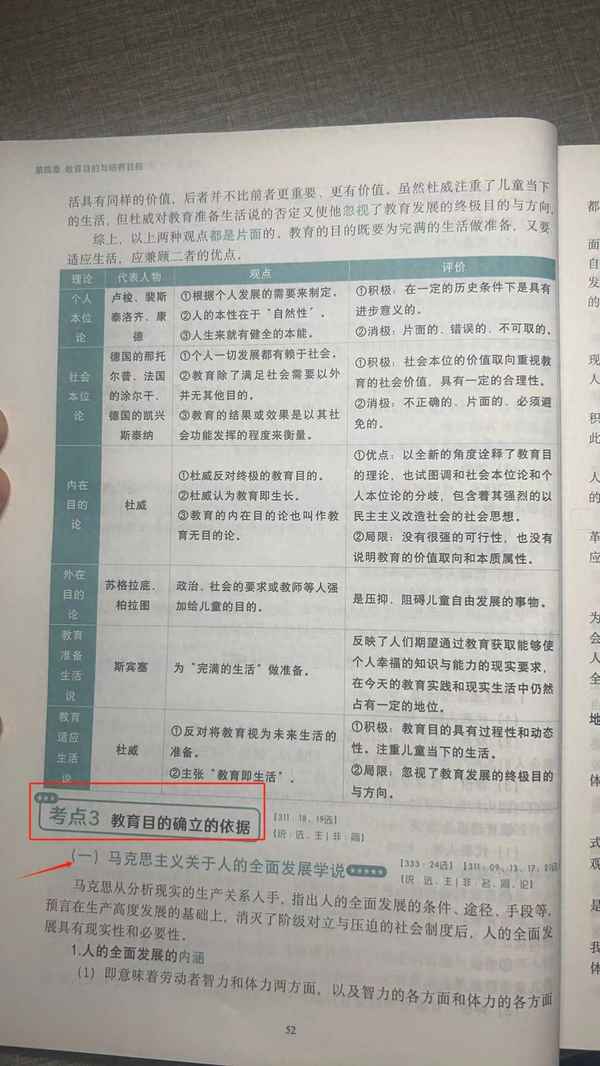 第四章 教育目的与培养目标
活具有同样的价值，后者并不比前者更重要、更有价值。虽然杜威注重了儿童当下
的生活，但杜威对教育准备生活说的否定又使他忽视了教育发展的终极目的与方向。
综上，以上两种观点都是片面的。教育的目的既要为完满的生活做准备，又要
适应生活，应兼顾二者的优点。
理论 代表人物 观点 评价
个人
本位
论
卢梭、裴斯
泰洛齐、康
德
①根据个人发展的需要来制定。
②人的本性在于“自然性”。
③人生来就有健全的本能。
①积极：在一定的历史条件下是具有
进步意义的。
②消极：片面的、错误的、不可取的。
社会
本位
论
德国的那托
尔普、法国
的涂尔干、
德国的凯兴
斯泰纳
①个人一切发展都有赖于社会。
②教育除了满足社会需要以外
并无其他目的。
③教育的结果或效果是以其社
会功能发挥的程度来衡量。
①积极：社会本位的价值取向重视教
育的社会价值，具有一定的合理性。
②消极：不正确的、片面的、必须避
免的。
内在
目的
论
杜威
①杜威反对终极的教育目的。
②杜威认为教育即生长。
③教育的内在目的论也叫作教
育无目的论。
①优点：以全新的角度诠释了教育目
的理论，也试图调和社会本位论和个
人本位论的分歧，包含着其强烈的以
民主主义改造社会的社会思想。
②局限：没有很强的可行性，也没有
说明教育的价值取向和本质属性。
外在
目的
论
苏格拉底、
柏拉图
政治、社会的要求或教师等人强
加给儿童的目的。
是压抑、阻碍儿童自由发展的事物。
教育
准备
生活
说
斯宾塞
为“完满的生活”做准备。
反映了人们期望通过教育获取能够使
个人幸福的知识与能力的现实要求，
在今天的教育实践和现实生活中仍然
占有一定的地位。
教育
适应
生活
说
杜威
①反对将教育视为未来生活的
准备。
②主张“教育即生活”。
①积极：教育目的具有过程性和动态
性。注重儿童当下的生活。
②局限：忽视了教育发展的终极目的
与方向。
考点3 教育目的确立的依据
【311：18、19选】
【统：选、王|非：简】
（一）马克思主义关于人的全面发展学说
【333：24选】【311：09、13、17、21选】
【统：选、王|非：名、简、论】
马克思从分析现实的生产关系入手，指出人的全面发展的条件、途径、手段等，
预言在生产高度发展的基础上，消灭了阶级对立与压迫的社会制度后，人的全面发
展具有现实性和必要性。
1.人的全面发展的内涵
（1）即意味着劳动者智力和体力两方面，以及智力的各方面和体力的各方面
52